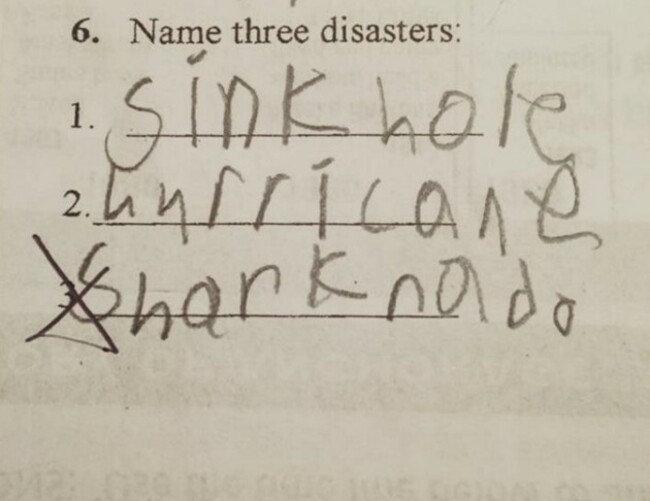 6. Name three disasters:
1. Sink hole
2. hurricane
3. Shark nado